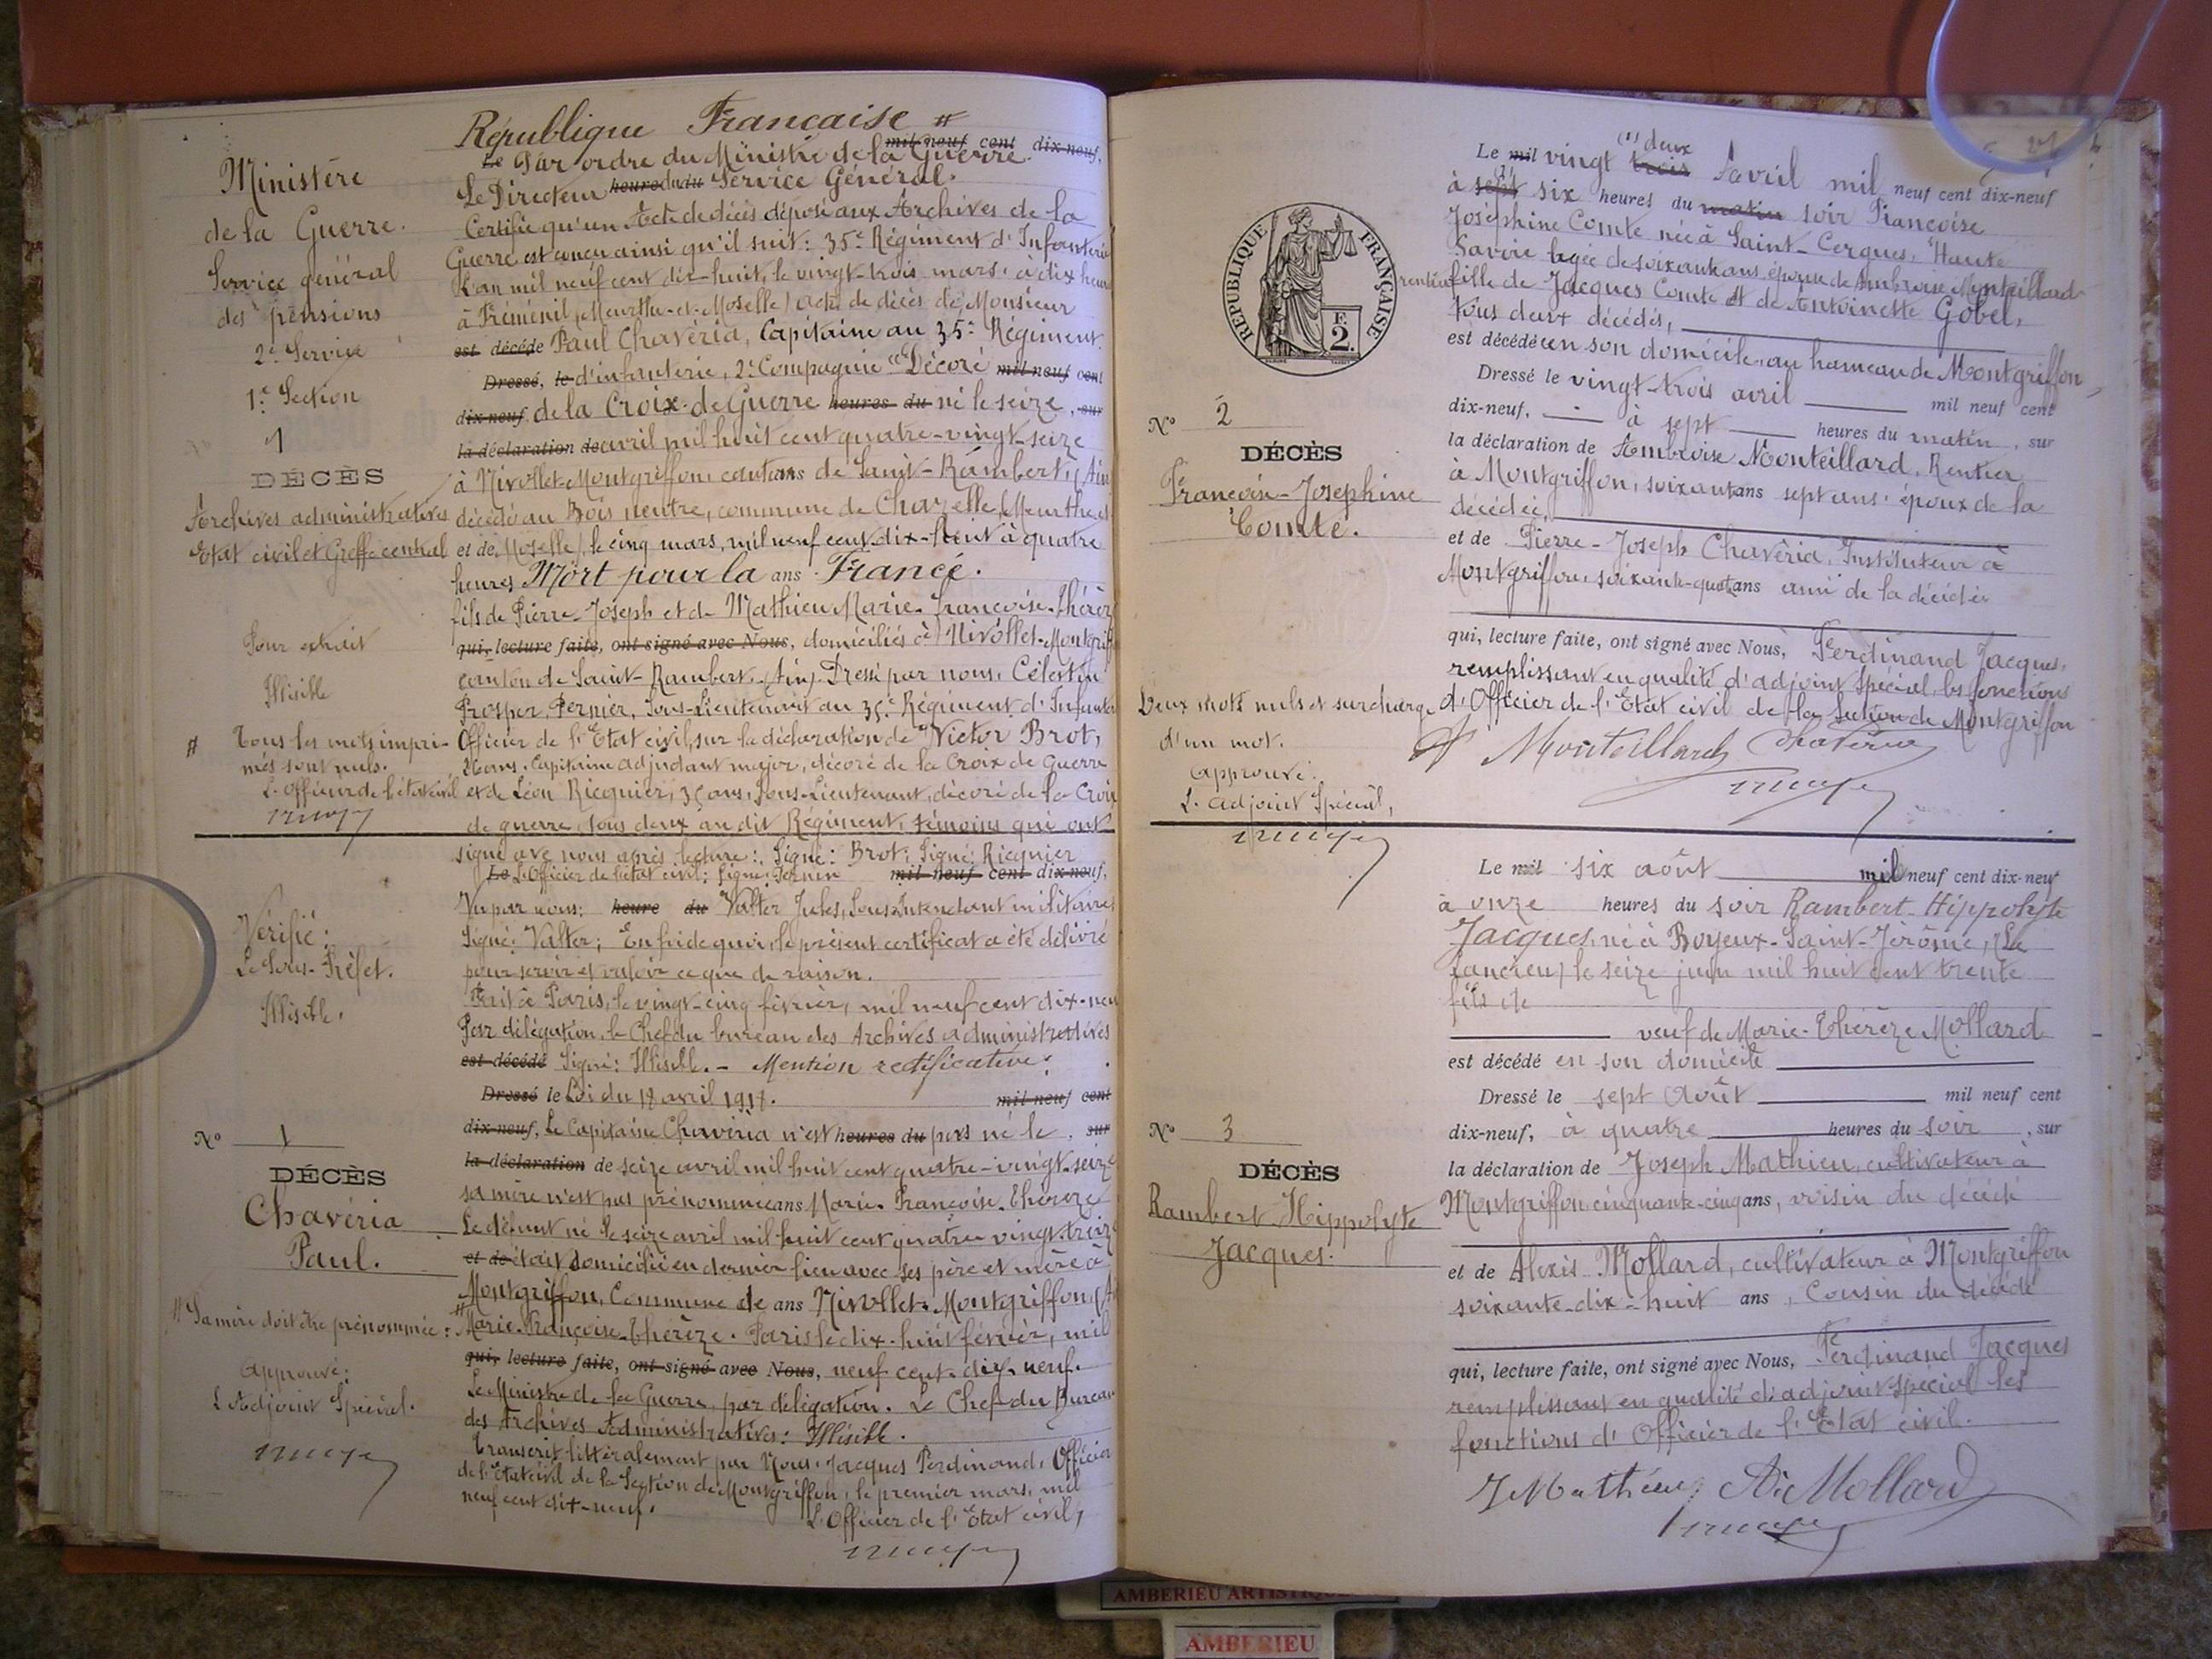 République Française #
Ministère
de la Guerre.
Service général
des pensions
2e Service
1e Section
1
DÉCÈS
Archives administratives
Etat civil et Greffe central
Pour extrait
Illisible
# Tous les mots impri-
més sont nuls.
L'officier de l'état civil
mil neuf cent dix-neuf,
Le Par ordre du Ministre de la Guerre.
Le Directeur heure du du Service Général.
Certifie qu'un Acte de décès déposé aux Archives de la
Guerre est conçu ainsi qu'il suit: 35e Régiment d'Infanterie
L'an mil neuf cent dix-huit, le vingt-trois mars, à dix heures
à Fréménil (Meurthe-et-Moselle) acte de décès de Monsieur
est décédé Paul Chavéria, Capitaine au 35e Régiment
Dressé, le d'infanterie, 2e Compagnie Décoré mil neuf cent
dix-neuf, de la Croix de Guerre heures du né le seize, sur
la déclaration de avril mil huit cent quatre-vingt-seize
à Nivollet-Montgriffon, canton ans de Saint-Rambert, (Ain
décédé au Bois neutre, commune de Chazelle, (Meurthe et
et de Moselle), le cinq mars, mil neuf cent dix-huit à quatre
heures Mort pour la ans France.
fils de Pierre-Joseph et de Mathieu Marie-Françoise-Thérèz
qui, lecture faite, ont signé avec Nous, domiciliés à Nivollet-Montgrif
canton de Saint-Rambert (Ain) Dressé par nous, Célestin
Prosper, Pernier, Sous-Lieutenant au 35e Régiment d'Infanter
Officier de l'Etat civil, sur la déclaration de Victor Brot,
26 ans, Capitaine adjudant major, décoré de la Croix de Guerre
et de Léon Ricquier, 35 ans, Sous-Lieutenant, décoré de la Croix
de guerre, tous deux au dit Régiment, témoins qui ont
signé avec nous après lecture: Signé: Brot; Signé: Ricquier
Le L'Officier de l'état civil; signé: Pernier mil neuf cent dix-neuf,
Vu par nous: heure du Valter Jules, Sous-Intendant militaire
Signé: Valter; En foi de quoi, le présent certificat a été délivré
pour servir et valoir ce que de raison.
Fait à Paris, le vingt-cinq février, mil neuf cent dix-neu
Par délégation, le Chef du bureau des Archives administratives
est décédé Signé: Illisible. - Mention rectificative:
Dressé le Loi du 18 avril 1918. mil neuf cent
dix-neuf, Le Capitaine Chavéria n'est heures du pas né le, sur
la déclaration de seize avril mil huit cent quatre-vingt-seize
sa mère n'est pas prénommée ans Marie-Françoise-Thérèze
Le défunt né le seize avril mil huit cent quatre vingt-treize
et de était domicilié en dernier lieu avec ses père et mère à
Montgriffon, Commune de ans Nivollet-Montgriffon, (A
# Marie-Françoise-Thérèze. Paris le dix-huit février, mil
qui, lecture faite, ont signé avec Nous, neuf cent-dix-neuf.
Le Ministre de la Guerre, par délégation. Le Chef du Bureau
des Archives Administratives: Illisible.
Transcrit littéralement par Nous, Jacques Ferdinand, Officier
de l'Etat civil de la Section de Montgriffon, le premier mars, mil
neuf cent dix-neuf.
L'Officier de l'Etat civil,
Vérifié:
Le Sous-Préfet.
Illisible.
No 1
DÉCÈS
Chavéria
Paul.
# Sa mère doit être prénommée:
Approuvé:
L'Adjoint Spécial.
RÉPUBLIQUE FRANÇAISE
F.
2.
No 2
DÉCÈS
Françoise-Joséphine
Comte.
Deux mots nuls et surcharge
d'un mot.
Approuvé:
L'adjoint Spécial,
Le mil vingt trois (1) deux d'avril mil neuf cent dix-neuf
à sept six heures du matin soir Françoise
Joséphine Comte née à Saint-Cergues, Haute
Savoie âgée de soixante ans, épouse de Ambroise Monteillard
rentier fille de Jacques Comte et de Antoinette Gobel,
tous deux décédés,
est décédée en son domicile, au hameau de Montgriffon,
Dressé le vingt-trois avril mil neuf cent
dix-neuf, à sept heures du matin, sur
la déclaration de Ambroise Monteillard, Rentier
à Montgriffon, soixante ans sept ans, époux de la
décédée,
et de Pierre-Joseph Chavéria, Instituteur à
Montgriffon, soixante-quatre ans ami de la décédée
qui, lecture faite, ont signé avec Nous, Ferdinand Jacques,
remplissant en qualité d'adjoint spécial, les fonctions
d'Officier de l'Etat civil de la Section de Montgriffon
A Monteillard Chavéria
No 3
DÉCÈS
Rambert-Hippolyte
Jacques.
Le mil six août mil neuf cent dix-neuf
à onze heures du soir Rambert-Hippolyte
Jacques, né à Boyeux-Saint-Jérôme, (La
fancieu) le seize juin mil huit cent trente
fils de
veuf de Marie-Thérèze Mollard
est décédé en son domicile
Dressé le sept Août mil neuf cent
dix-neuf, à quatre heures du soir, sur
la déclaration de Joseph Mathieu, cultivateur à
Montgriffon cinquante-cinq ans, voisin du décédé
et de Alexis Mollard, cultivateur à Montgriffon
soixante-dix-huit ans, Cousin du décédé
qui, lecture faite, ont signé avec Nous, Ferdinand Jacques
remplissant en qualité d'adjoint spécial les
fonctions d'Officier de l'Etat civil.
J Mathieu Ai Mollard
AMBERIEU ARTISTIQUE
AMBERIEU